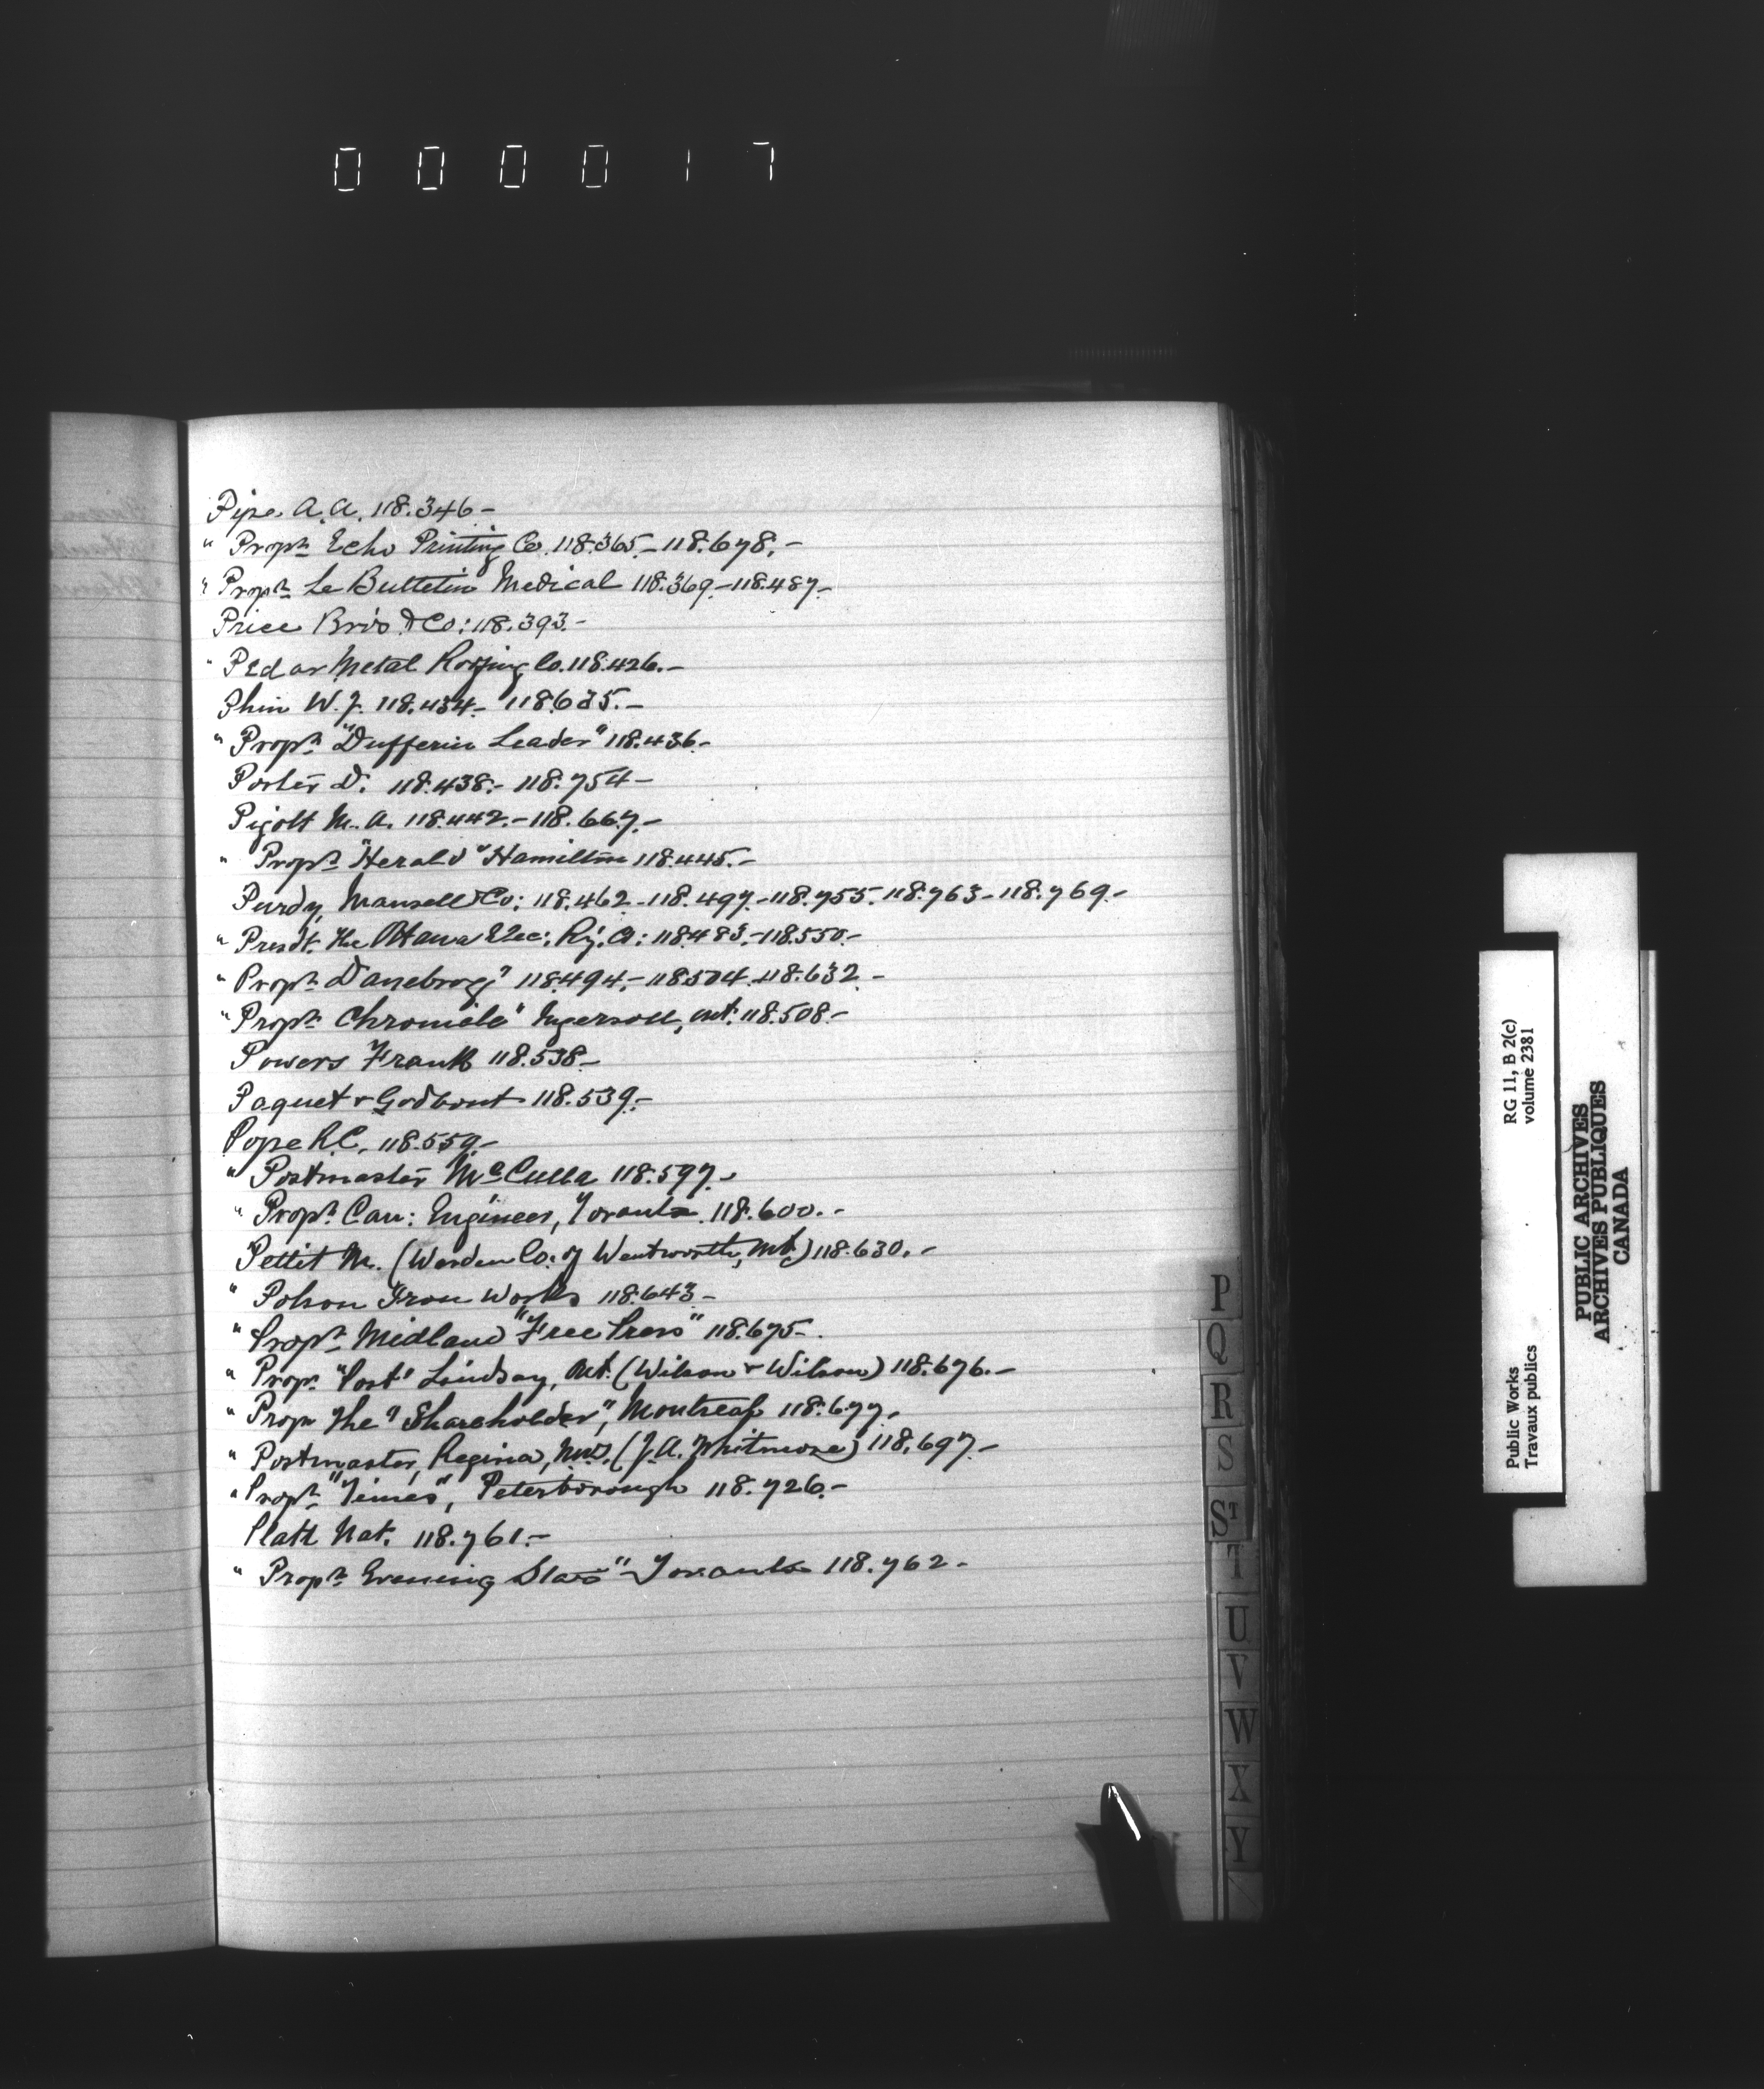 000017
Pipe A. A. 118.346-
" Proprs Echo Printing Co. 118.365.-118.678.-
" Proprs Le Bulletin Medical 118.369.-118.487.-
Price Bros & Co: 118.393.-
" Pedlar Metal Roofing Co. 118.426.-
Phin W. J. 118.434.- 118.635.-
" Proprs "Dufferin Leader" 118.436.-
Porter D. 118.438.- 118.754-
Pigott M. A. 118.442.-118.667.-
" Proprs "Herald" Hamilton 118.445.-
Purdy, Mansell & Co: 118.462.-118.497.-118.755.118.763-118.769.-
" Presdt. The Ottawa Elec: Ry. Co: 118.483.-118.550.-
" Proprs Danebrog" 118.494.-118.504.-118.632.-
" Proprs Chronicle" Ingersoll, Ont. 118.508.-
Powers Frank 118.538.-
Paquet & Godbout 118.539.-
Pope R.C. 118.559.-
" Postmaster McCulla 118.597.-
" Proprs Can: Engineer, Toronto 118.600.-
Pettit M. (Warden Co: of Wentworth, Ont.) 118.630.-
" Polson Iron Works 118.643-
" Proprs Midland "Free Press" 118.675-.
" Propr. "Post" Lindsay, Ont. (Wilson & Wilson) 118.676.-
" Propr The "Shareholder", Montreal 118.677.-
" Postmaster, Regina, N.W.T. (J. A. Whitmore) 118.697.-
" Proprs "Times", Peterborough 118.726.-
Platt Nat. 118.761.-
" Proprs Evening Star" Toronto 118.762-
P
Q
R
S
ST
T
U
V
W
X
Y
RG 11, B 2(c)
volume 2381
Public Works
Travaux publics
PUBLIC ARCHIVES
ARCHIVES PUBLIQUES
CANADA